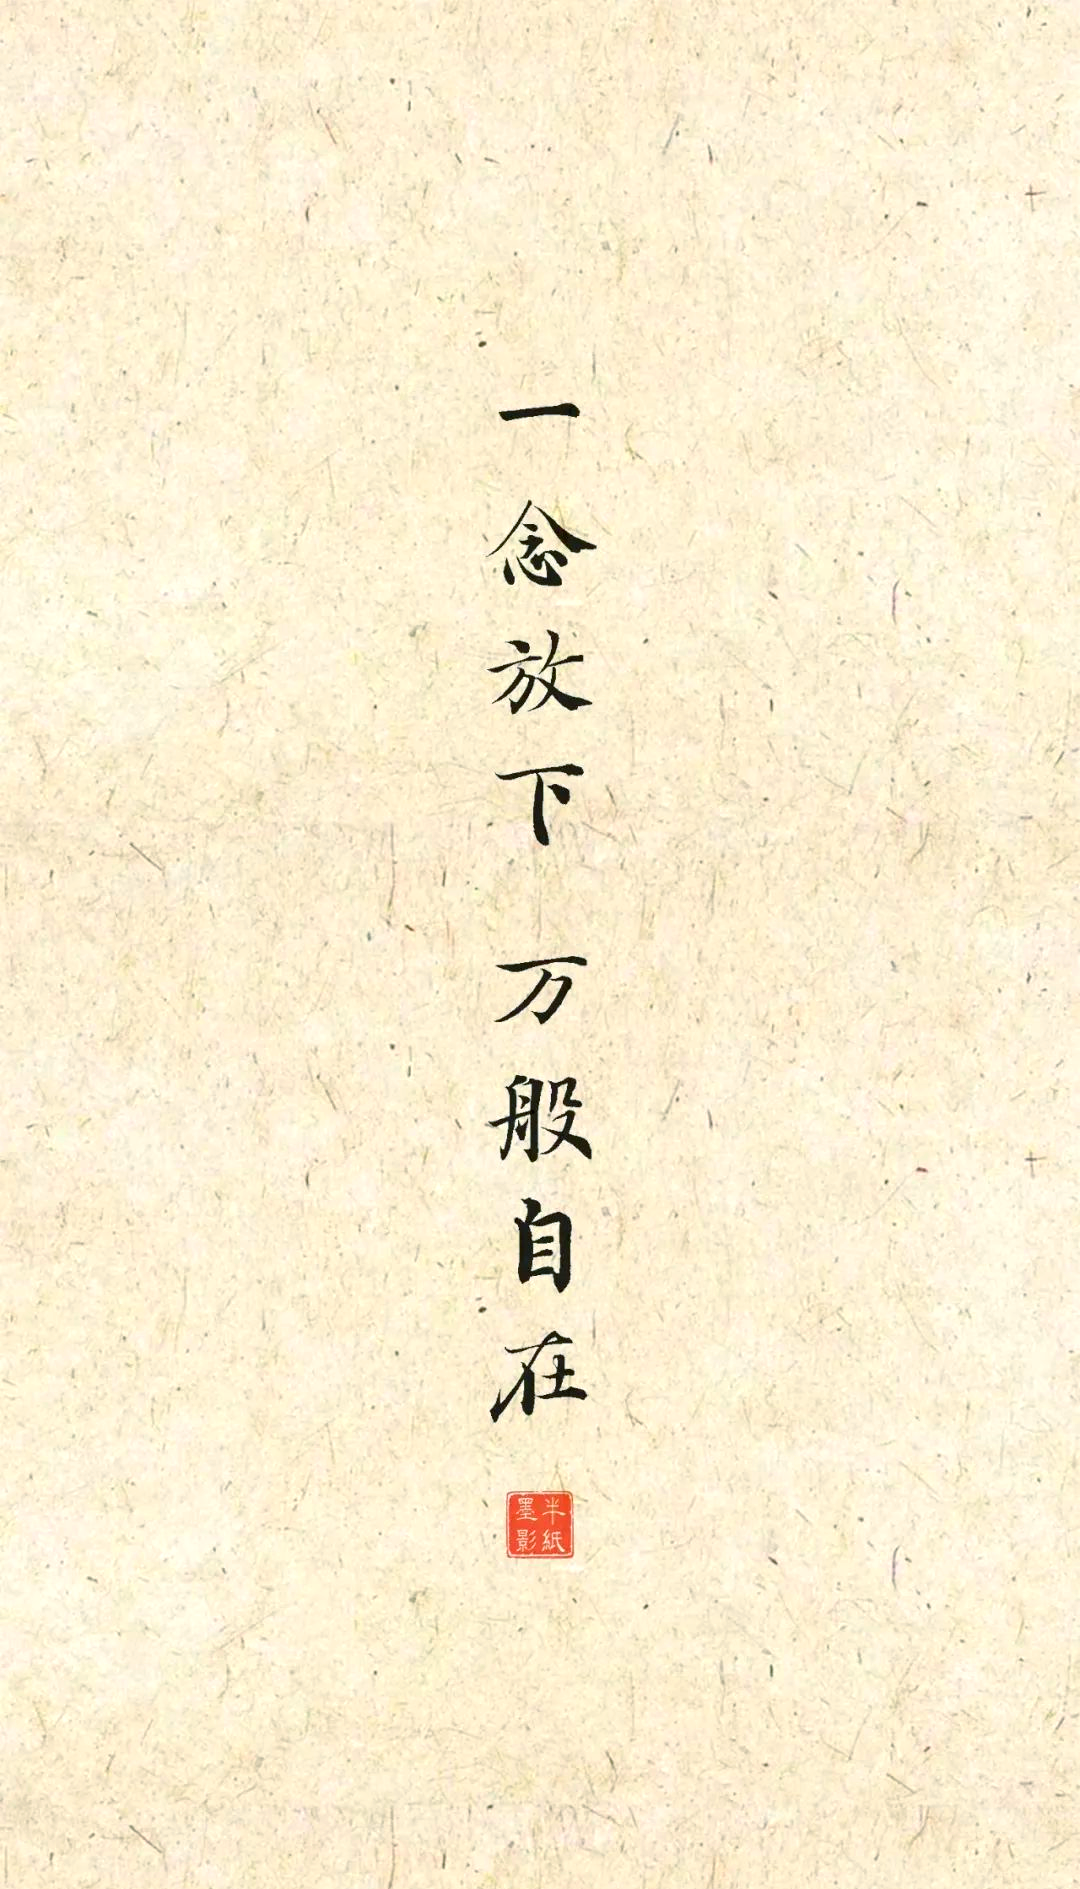 一念放下 万般自在
半紙
墨影